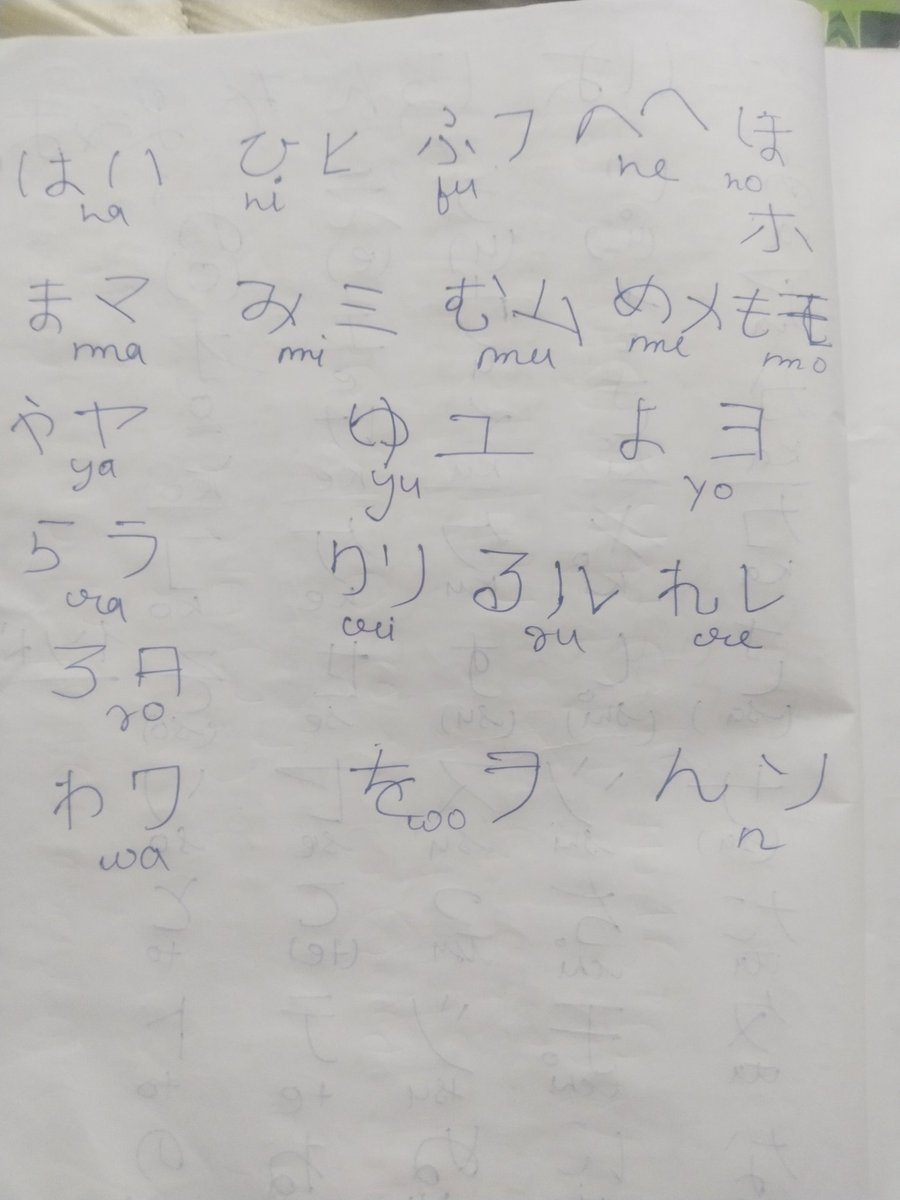 はハ ひヒ ふフ へヘ ほ
ha hi fu he ho
ホ
まマ みミ むム めメ もモ
ma mi mu me mo
やヤ ゆユ よヨ
ya yu yo
らラ りリ るル れレ
ra ri ru re
ろロ
ro
わワ をヲ んン
wa wo n